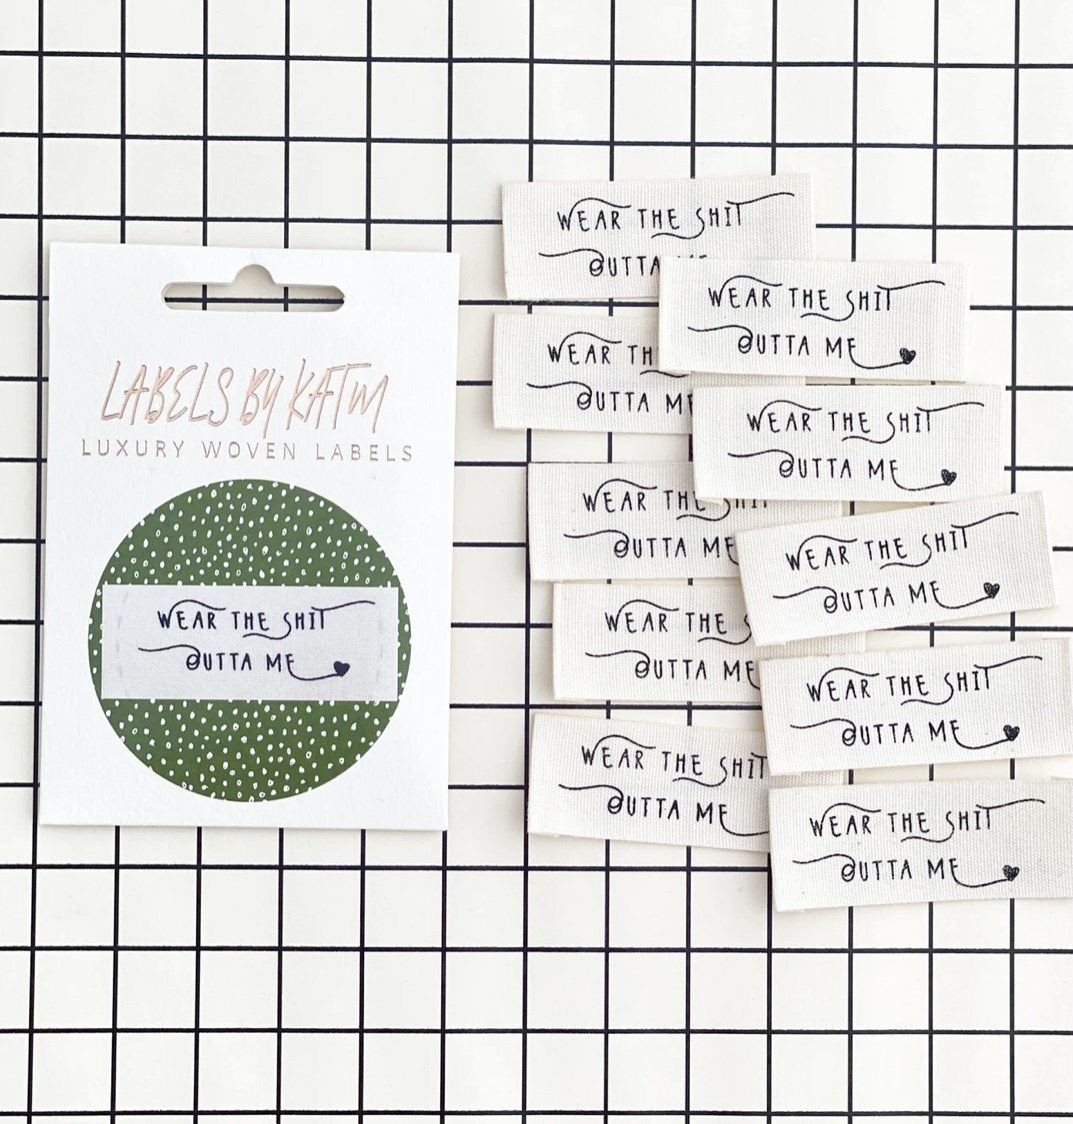 LABELS BY KATM
LUXURY WOVEN LABELS
WEAR THE SHIT
OUTTA ME
WEAR THE SHIT
OUTTA
WEAR THE SHIT
OUTTA ME
WEAR TH
OUTTA ME
WEAR THE SHIT
OUTTA ME
WEAR THE SHIT
OUTTA ME
WEAR THE SHIT
OUTTA ME
WEAR THE S
OUTTA ME
WEAR THE SHIT
OUTTA ME
WEAR THE SHIT
OUTTA ME
WEAR THE SHIT
OUTTA ME